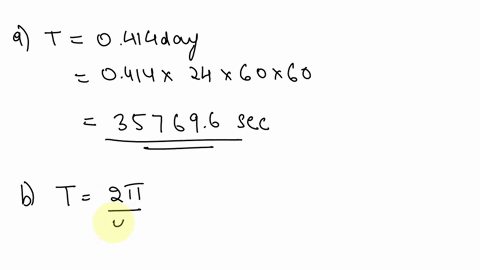 a) T = 0.414 day
= 0.414 × 24 × 60 × 60
= 35769.6 sec
b) T = 2π